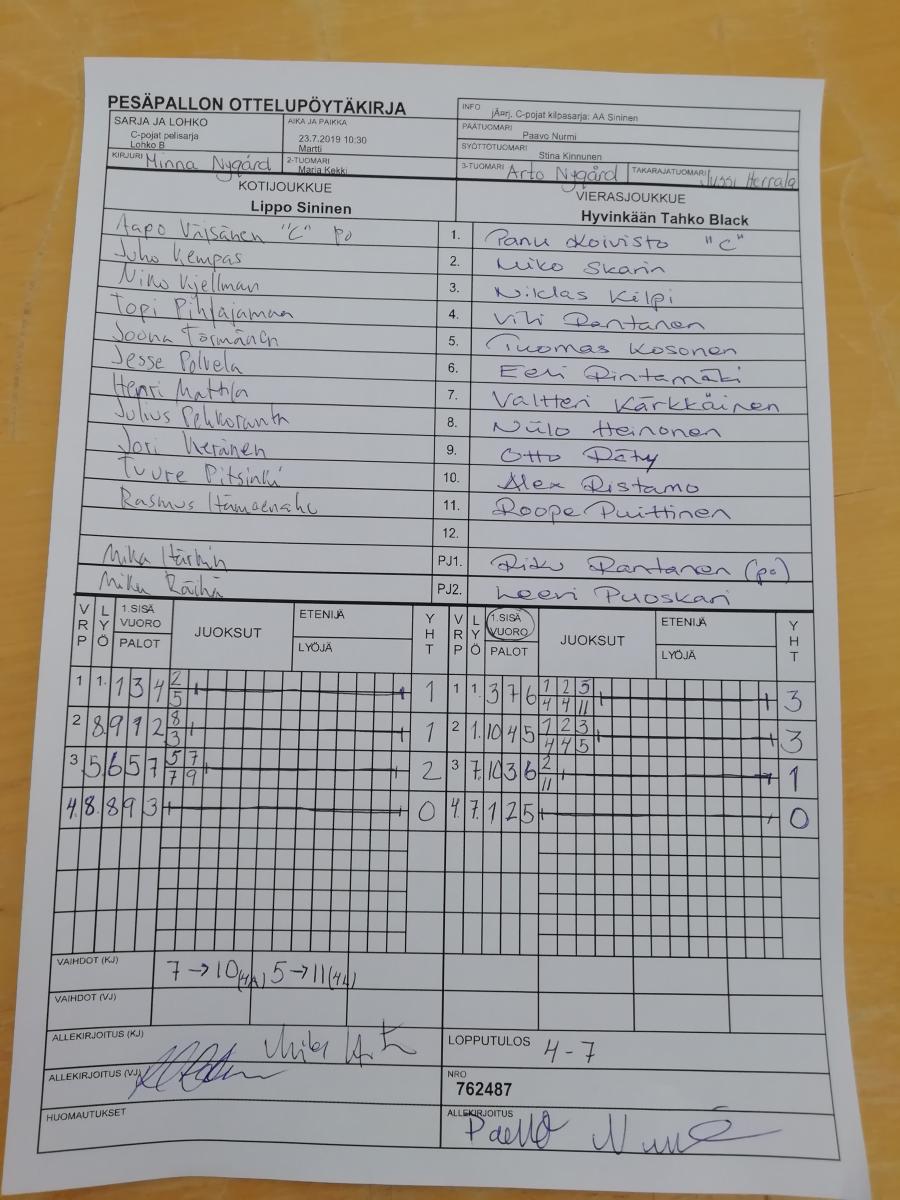 PESÄPALLON OTTELUPÖYTÄKIRJA
INFO jÃ¤rj. C-pojat kilpasarja: AA Sininen
SARJA JA LOHKO C-pojat pelisarja Lohko B
AIKA JA PAIKKA 23.7.2019 10:30 Martti
PÄÄTUOMARI Paavo Nurmi
SYÖTTÖTUOMARI Stina Kinnunen
KIRJURI Minna Nygård
2-TUOMARI Maria Kekki
3-TUOMARI Arto Nygård
TAKARAJATUOMARI Jussi Herrala
KOTIJOUKKUE VIERASJOUKKUE
Lippo Sininen Hyvinkään Tahko Black
Aapo Väisänen "C" po 1. Panu Koivisto "C"
Juho Kempas 2. Miko Skarin
Niko Kjellman 3. Niklas Kilpi
Topi Pihlajamaa 4. Vili Rantanen
Joona Törmänen 5. Tuomas Kosonen
Jesse Polvela 6. Eeli Rintamäki
Henri Mattila 7. Valtteri Kärkkäinen
Julius Pehkoranta 8. Niilo Heinonen
Jori Keränen 9. Otto Räty
Tuure Pitsinki 10. Alex Ristamo
Rasmus 11. Roope Puittinen
12.
Mika PJ1. Riku Rantanen (po)
Mika Räihä PJ2. Leevi Puoskari
VRP LYÖ 1.SISÄ VUORO PALOT JUOKSUT ETENIJÄ LYÖJÄ YHT VRP LYÖ 1.SISÄ VUORO PALOT JUOKSUT ETENIJÄ LYÖJÄ YHT
1 1. 1 3 4 2/5 1 1 1. 3 7 6 1/4 2/4 5/11 3
2 8 9 1 2 8/3 1 2 1. 10 4 5 1/4 2/4 3/5 3
3 5. 6 5 7 5/7 7/9 2 3 7. 10 3 6 2/11 1
4. 8. 8 9 3 0 4. 7. 1 2 5 0
VAIHDOT (KJ) 7→10(4A) 5→11(4L)
VAIHDOT (VJ)
ALLEKIRJOITUS (KJ) LOPPUTULOS 4-7
ALLEKIRJOITUS (VJ) NRO 762487
HUOMAUTUKSET ALLEKIRJOITUS